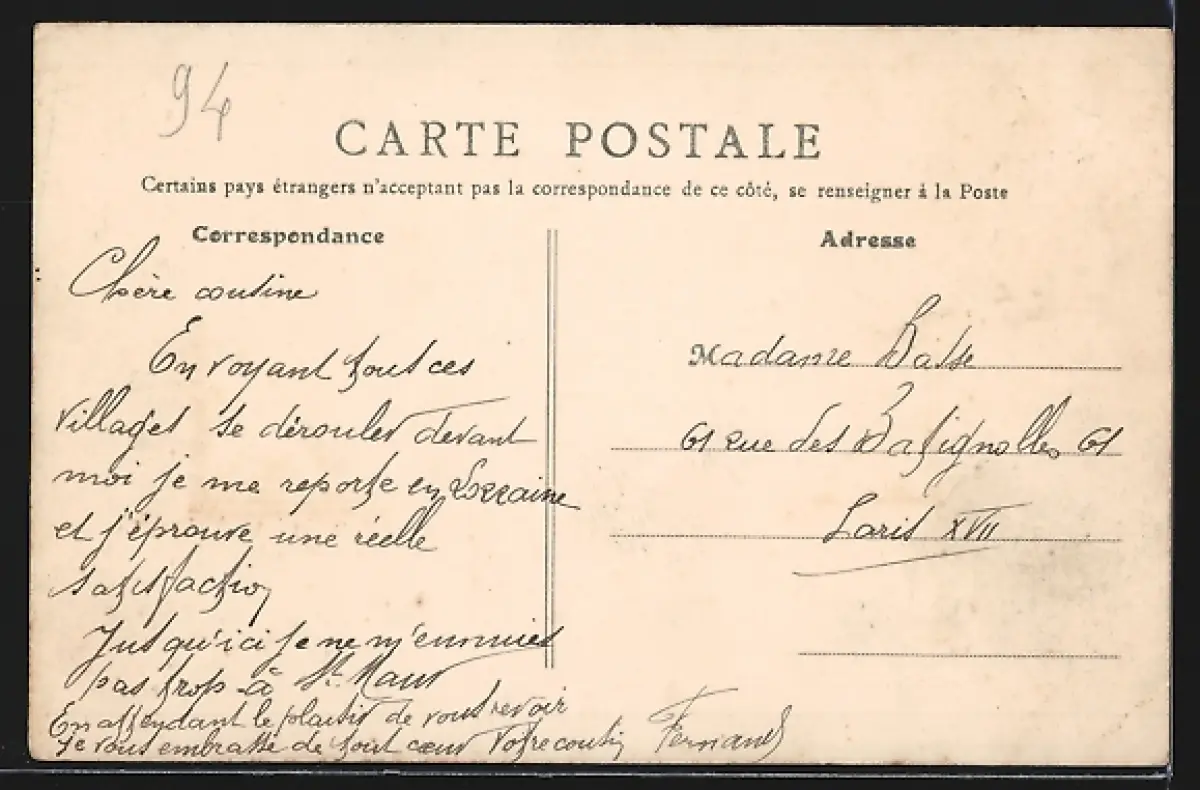 94
CARTE POSTALE
Certains pays étrangers n'acceptant pas la correspondance de ce côté, se renseigner à la Poste
Correspondance
Chère cousine
En voyant tout ces
villages se dérouler devant
moi je me reporte en Lorraine
et j'éprouve une réelle
satisfaction
Jusqu'ici je ne m'ennuies
pas trop à St. Maur
En attendant le plaisir de vous revoir
Je vous embrasse de tout cœur Votre cousin Fernand
Adresse
Madame
61 Rue des Batignolles 61
Paris XVII